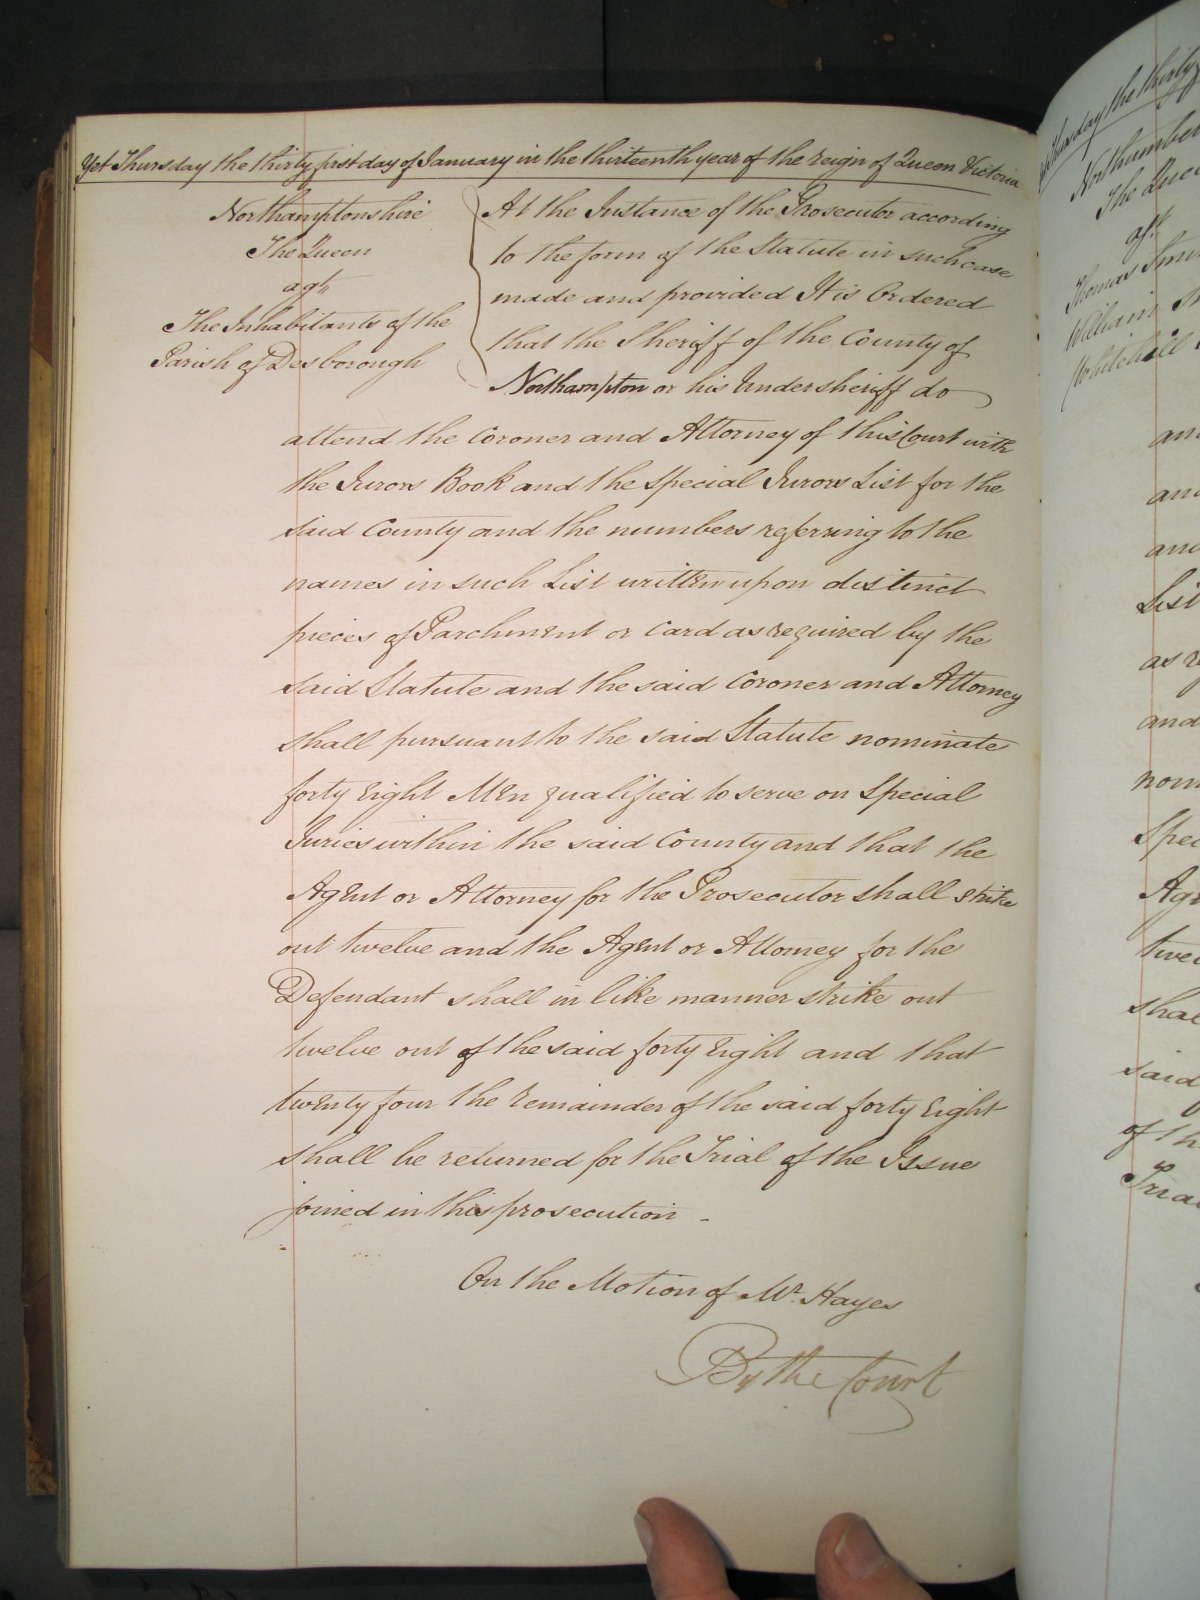 Yet Thursday the thirty first day of January in the thirteenth year of the reign of Queen Victoria
Northamptonshire
The Queen
agt
The Inhabitants of the
Parish of Desborough
At the Instance of the Prosecutor according
to the form of the Statute in such case
made and provided It is Ordered
that the Sheriff of the County of
Northampton or his Undersheriff do
attend the Coroner and Attorney of this Court with
the Jurors Book and the Special Jurors List for the
said County and the numbers referring to the
names in such List written upon distinct
pieces of Parchment or Card as required by the
said Statute and the said Coroner and Attorney
shall pursuant to the said Statute nominate
forty eight Men qualified to serve on Special
Juries within the said County and that the
Agent or Attorney for the Prosecutor shall strike
out twelve and the Agent or Attorney for the
Defendant shall in like manner strike out
twelve out of the said forty eight and that
twenty four the remainder of the said forty eight
shall be returned for the Trial of the Issue
joined in this prosecution -
On the Motion of Mr. Hayes
By the Court
Thursday the thirty
Northumber
The Quee
agt
Thomas
William
Whitehall
and
and
and
List
as re
and
nom
Spec
Age
twel
shal
said
of th
Tria